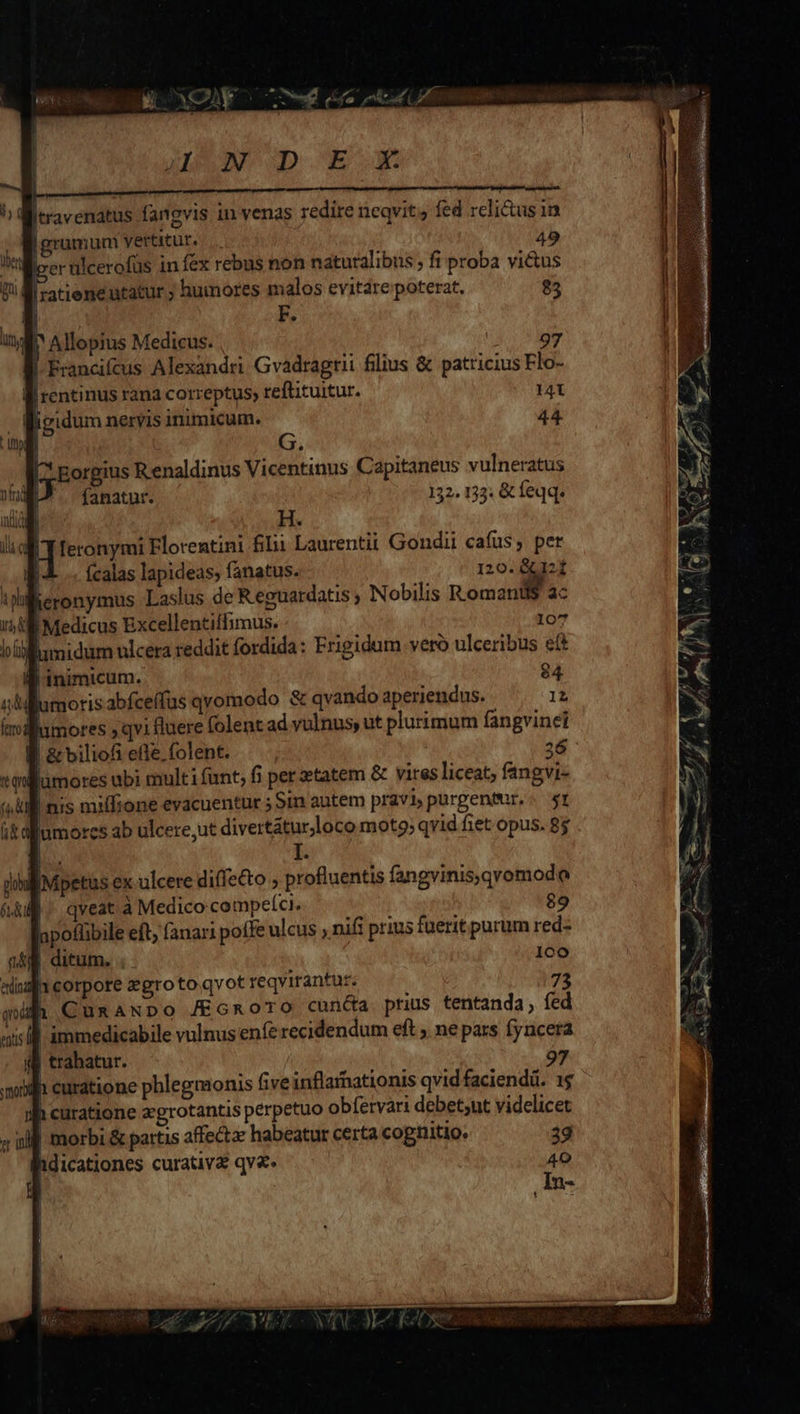 INDEX
travenatus ſangvis in venas redire neqvit, ſed relictus in
grumum vertitur. 49
ger ulceroſus in ſex rebus non naturalibus, ſi proba victus
ratione utatur, humores malos evitare poterat. 83
F.
Allopius Medicus. 97
Franciſcus Alexandri Gvadragrii filius & patricius Flo-
rentinus rana correptus, reſtituitur. 141
igidum nervis inimicum. 44
G.
Eorgius Renaldinus Vicentinus Capitaneus vulneratus
ſanatur. 132. 133. & ſeqq.
H.
Ieronymi Florentini filii Laurentii Gondii caſus, per
ſcalas lapideas, ſanatus. 120. & 121
ieronymus Laslus de Reguardatis, Nobilis Romanus ac
Medicus Excellentiſſimus. 107
umidum ulcera reddit ſordida: Frigidum verò ulceribus eſt
inimicum. 84
umoris abſceſſus qvomodo & qvando aperiendus. 12
umores, qvi fluere ſolent ad vulnus, ut plurimum ſangvinei
& bilioſi eſſe ſolent. 36
umores ubi multi ſunt, ſi per ætatem & vires liceat, ſangvi-
nis miſſione evacuentur; Sin autem pravi, purgentur. 51
umores ab ulcere, ut divertátur, loco moto, qvid fiet opus. 85
I.
Mpetus ex ulcere diſſecto, profluentis ſangvinis, qvomodo
qveat à Medico compeſci. 89
mpoſſibile eſt, ſanari poſſe ulcus, niſi prius fuerit purum red-
ditum. 100
n corpore ægroto qvot reqvirantur. 73
n CURANDO ÆGROTO cuncta prius tentanda, ſed
immedicabile vulnus enſe recidendum eſt, ne pars ſyncera
trahatur. 97
n curatione phlegmonis ſive inflammationis qvid faciendū. 15
n curatione ægrotantis perpetuo obſervari debet, ut videlicet
morbi & partis affectæ habeatur certa cognitio. 39
ndicationes curativæ qvæ. 40
In-